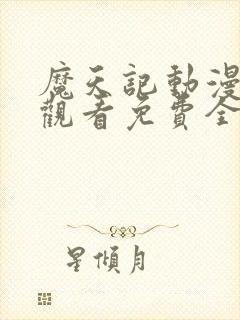 魔天記動漫
觀看免費全
星傾月